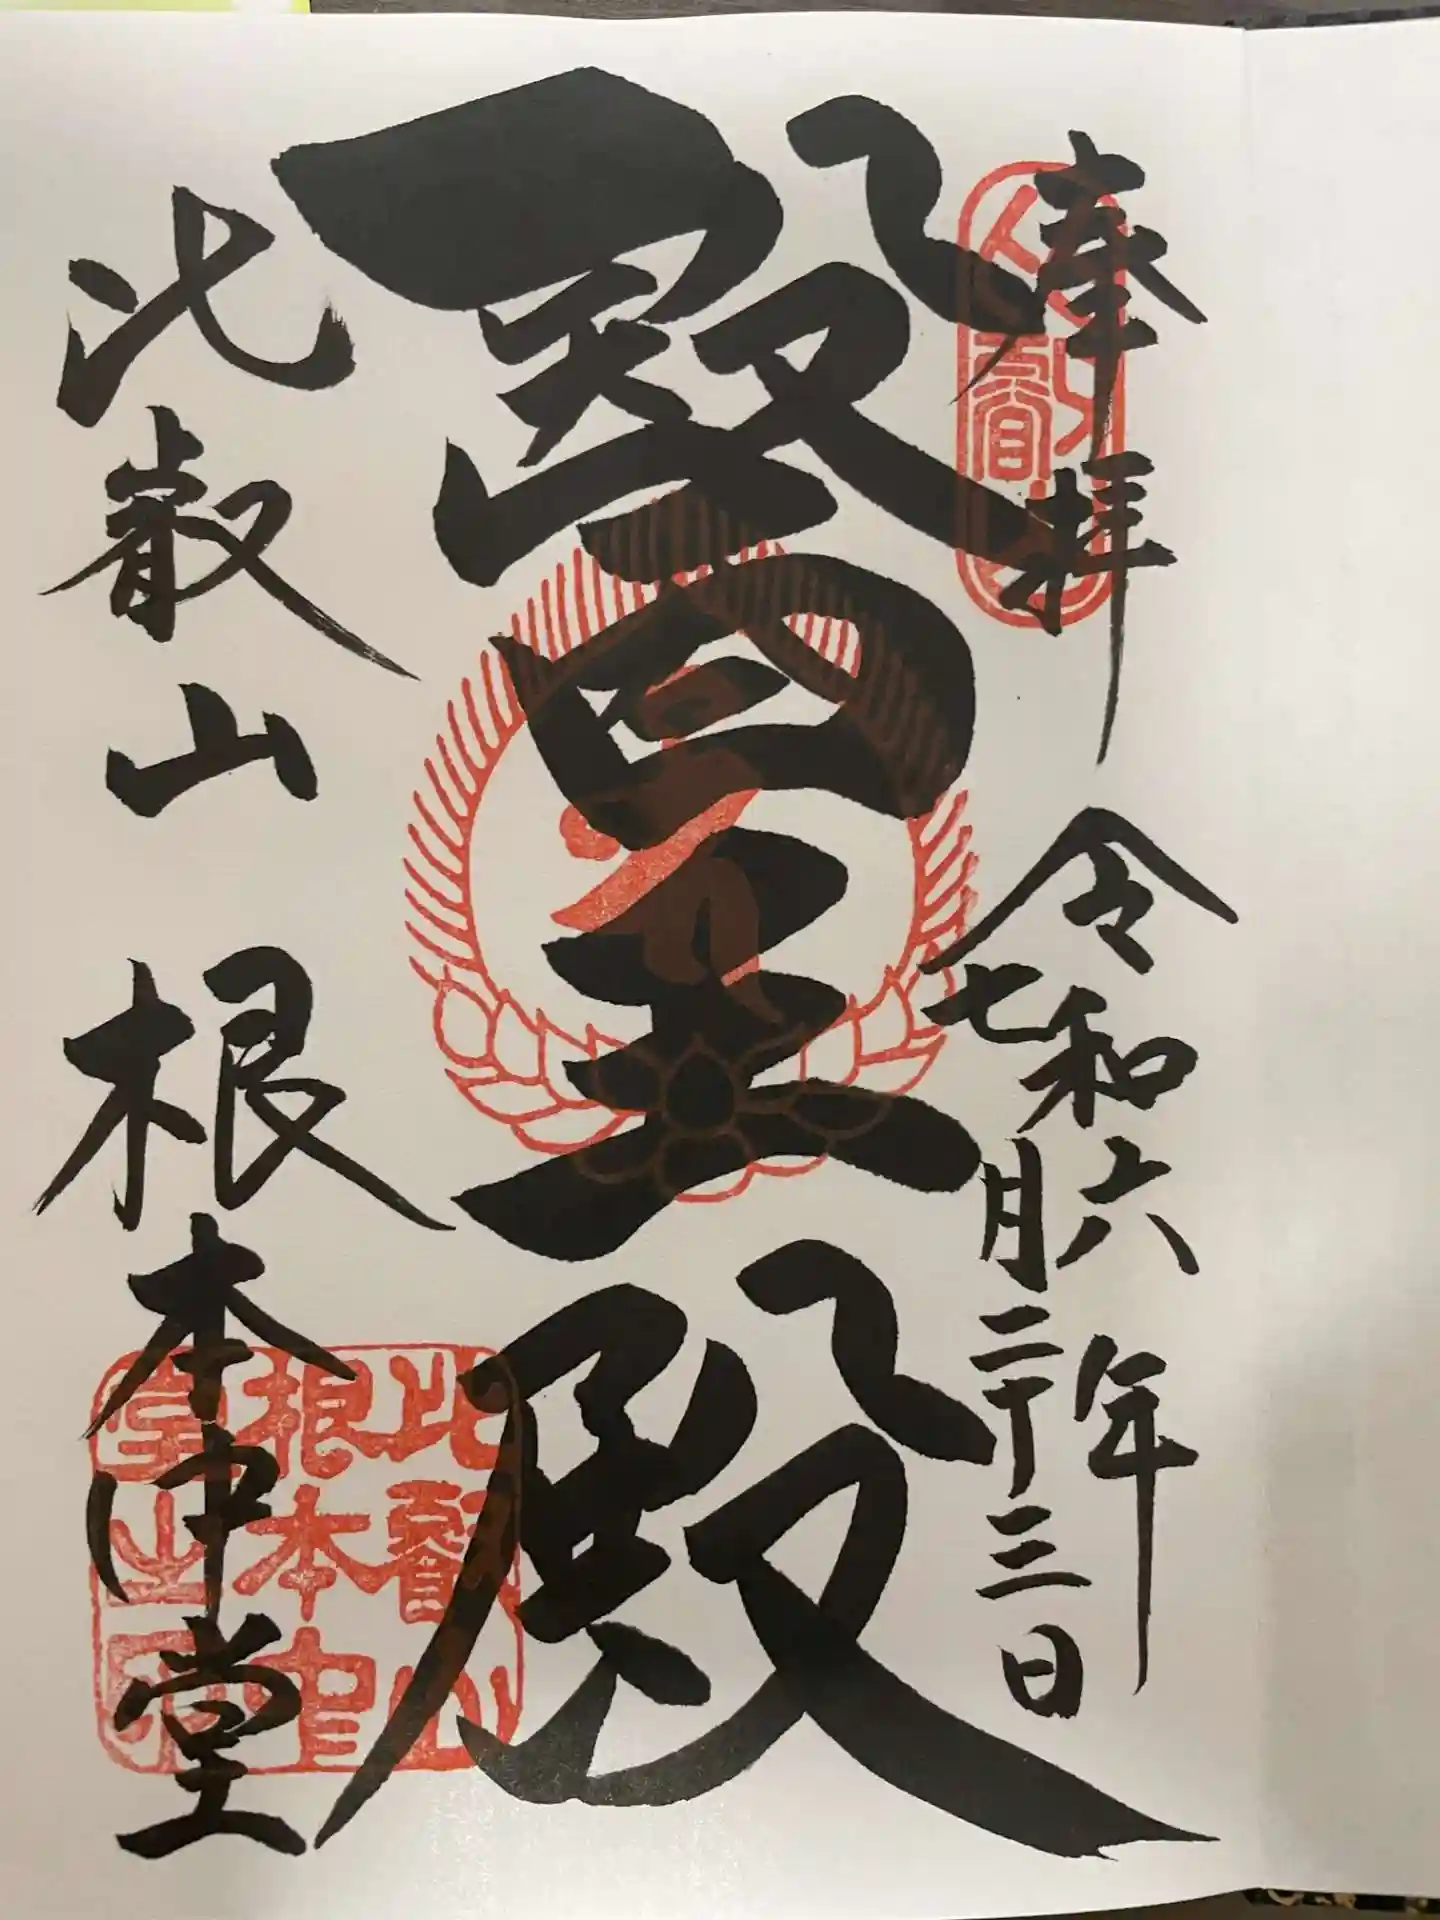 奉拝
令和六年
七月二十三日
醫王殿
比叡山 根本中堂
比叡山
根本中
堂之印